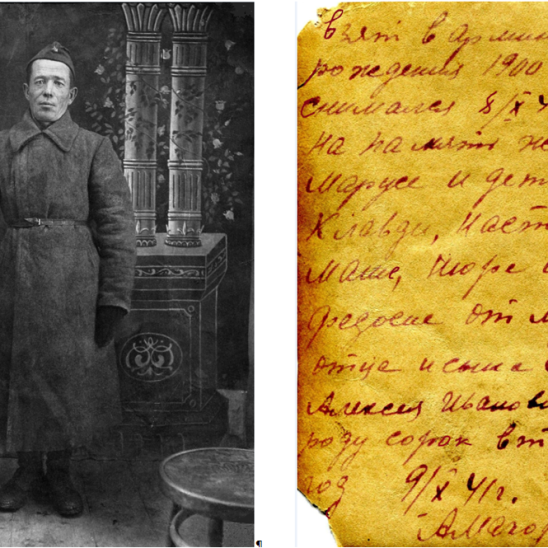 Взят в арми
рождения 1900
снимался 8/X 4
на память же
Марусе и дет
Клавди, Наст
Маше, Шуре и
Федосие от м
отца и сына
Алексея Иванов
году сорок вт
год 9/X 41 г.